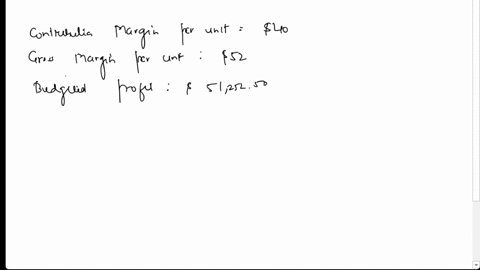 Contribution Margin per unit = $40
Gross Margin per unit : $52
Budgeted profit : $ 51,252.50